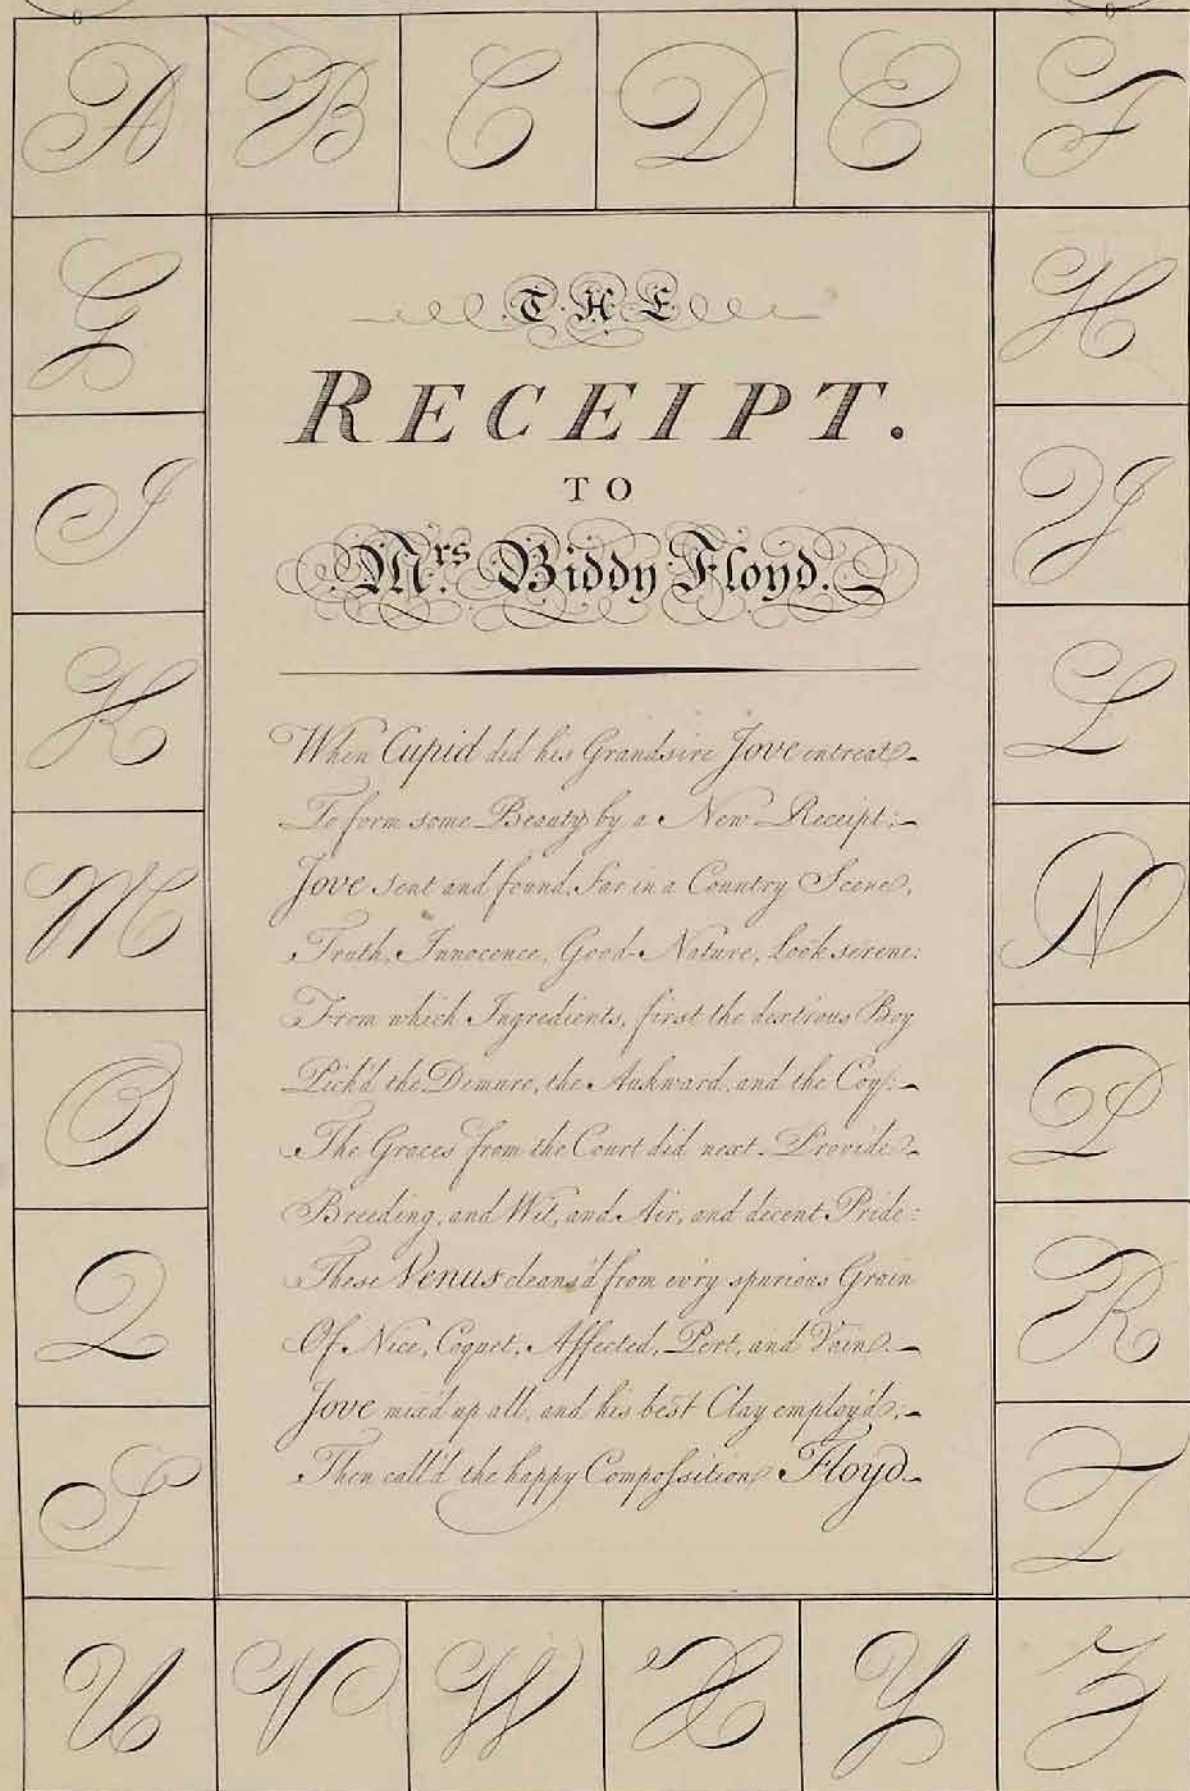 A B C D E F
G H
I J
K L
M N
O P
Q R
S T
U V W X Y Z
THE
RECEIPT.
TO
Mrs. Biddy Floyd.
When Cupid did his Grandsire Jove entreat
To form some Beauty by a New Receipt;
Jove sent and found, far in a Country Scene,
Truth, Innocence, Good-Nature, Look serene:
From which Ingredients, first the dext'rous Boy
Pick'd the Demure, the Aukward, and the Coy:
The Graces from the Court did next Provide
Breeding, and Wit, and Air, and decent Pride:
These Venus cleans'd from ev'ry spurious Grain
Of Nice, Coquet, Affected, Pert, and Vain.
Jove mix'd up all, and his best Clay employ'd;
Then call'd the happy Compoſsition Floyd